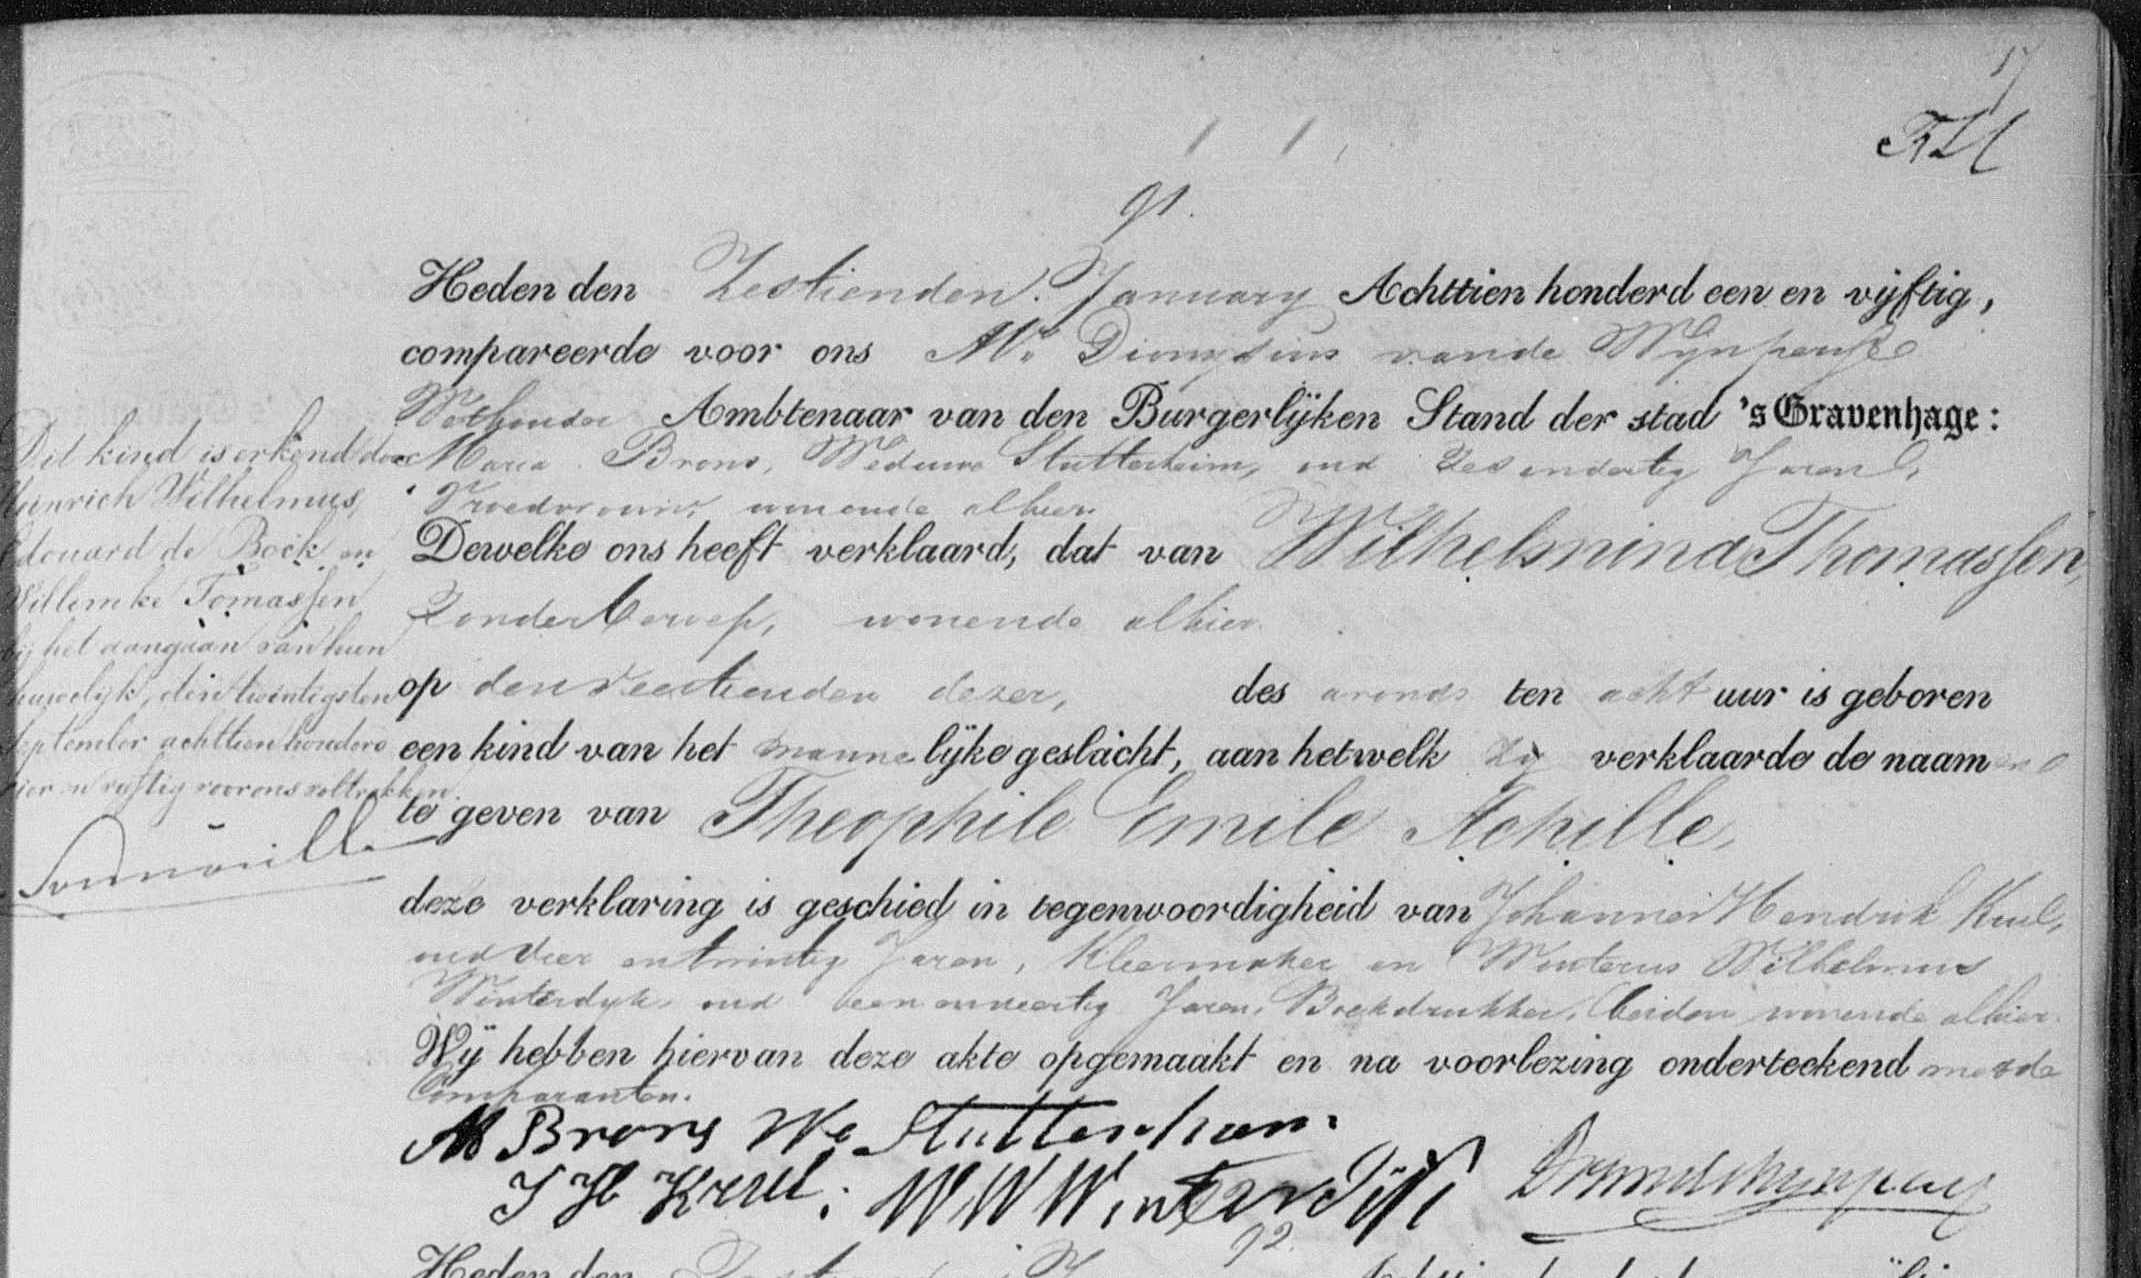 91.
Heden den Zestienden January Achttien honderd een en vijftig,
compareerde voor ons Mr. Dionysius van de Wynpersse
Wethouder Ambtenaar van den Burgerlijken Stand der stad 's Gravenhage:
Maria Brons, Weduwe Stutterheim, oud Zes en dertig Jaren,
Vroedvrouw, wonende alhier
Dewelke ons heeft verklaard, dat van Wilhelmina Thomassen,
Zonder beroep, wonende alhier
op den veertienden dezer, des avonds ten acht uur is geboren
een kind van het mannelijke geslacht, aan hetwelk zy verklaarde de naamen
te geven van Theophile Emile Achille,
deze verklaring is geschied in tegenwoordigheid van Johannes Hendrik Krul,
oud Vier en twintig Jaren, Kleermaker en Wouterus Wilhelmus
Winterdyk oud een en veertig Jaren, Boekdrukker, beiden wonende alhier.
Wij hebben hiervan deze akte opgemaakt en na voorlezing onderteekend met de
Comparanten.
M Brons We Stutterheim.
J H Krul. W W Winterdijk
92.
Heden den
Dit kind is erkend door
Heinrich Wilhelmus
Edouard de Bock en
Willemke Tomassen
bij het aangaan van hun
huwelyk, den twintigsten
September achttien honderd
vier en vyftig voor ons voltrokken.